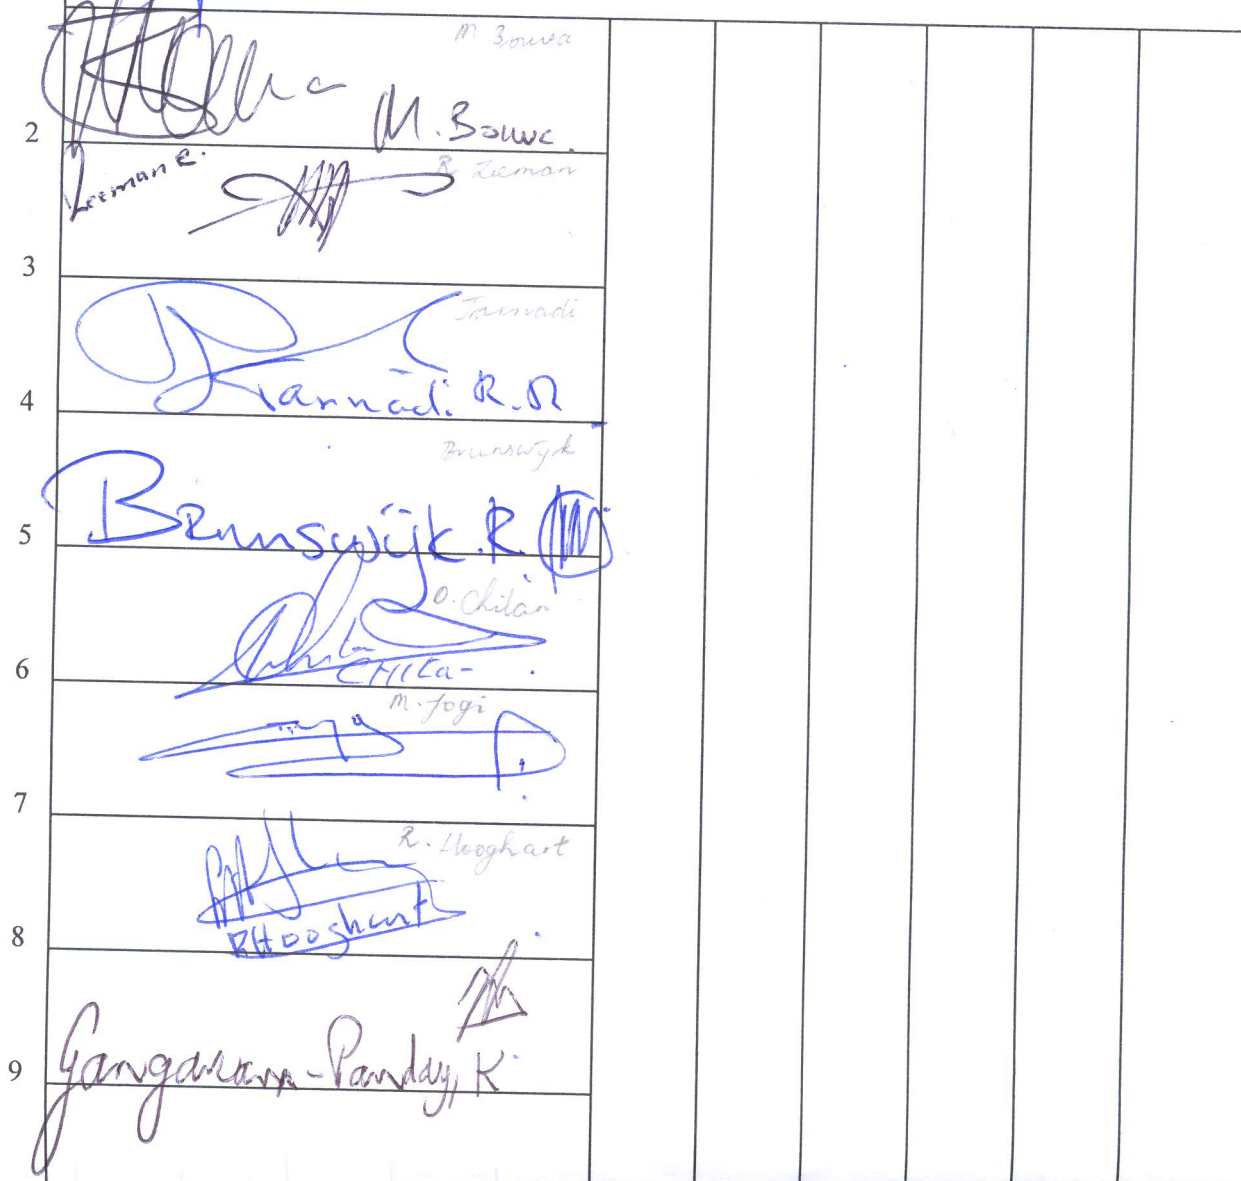 M Bouva
M. Bouva.
2
R Zeeman
Zeeman R.
3
Jarnadi
Karnadi. R.R
4
Brunswijk
Brunswijk.R.
5
O. Chilan
CHILa-
6
M. Jogi
7
R. Hooghart
RHooghart
8
Gangaram-Panday, K
9